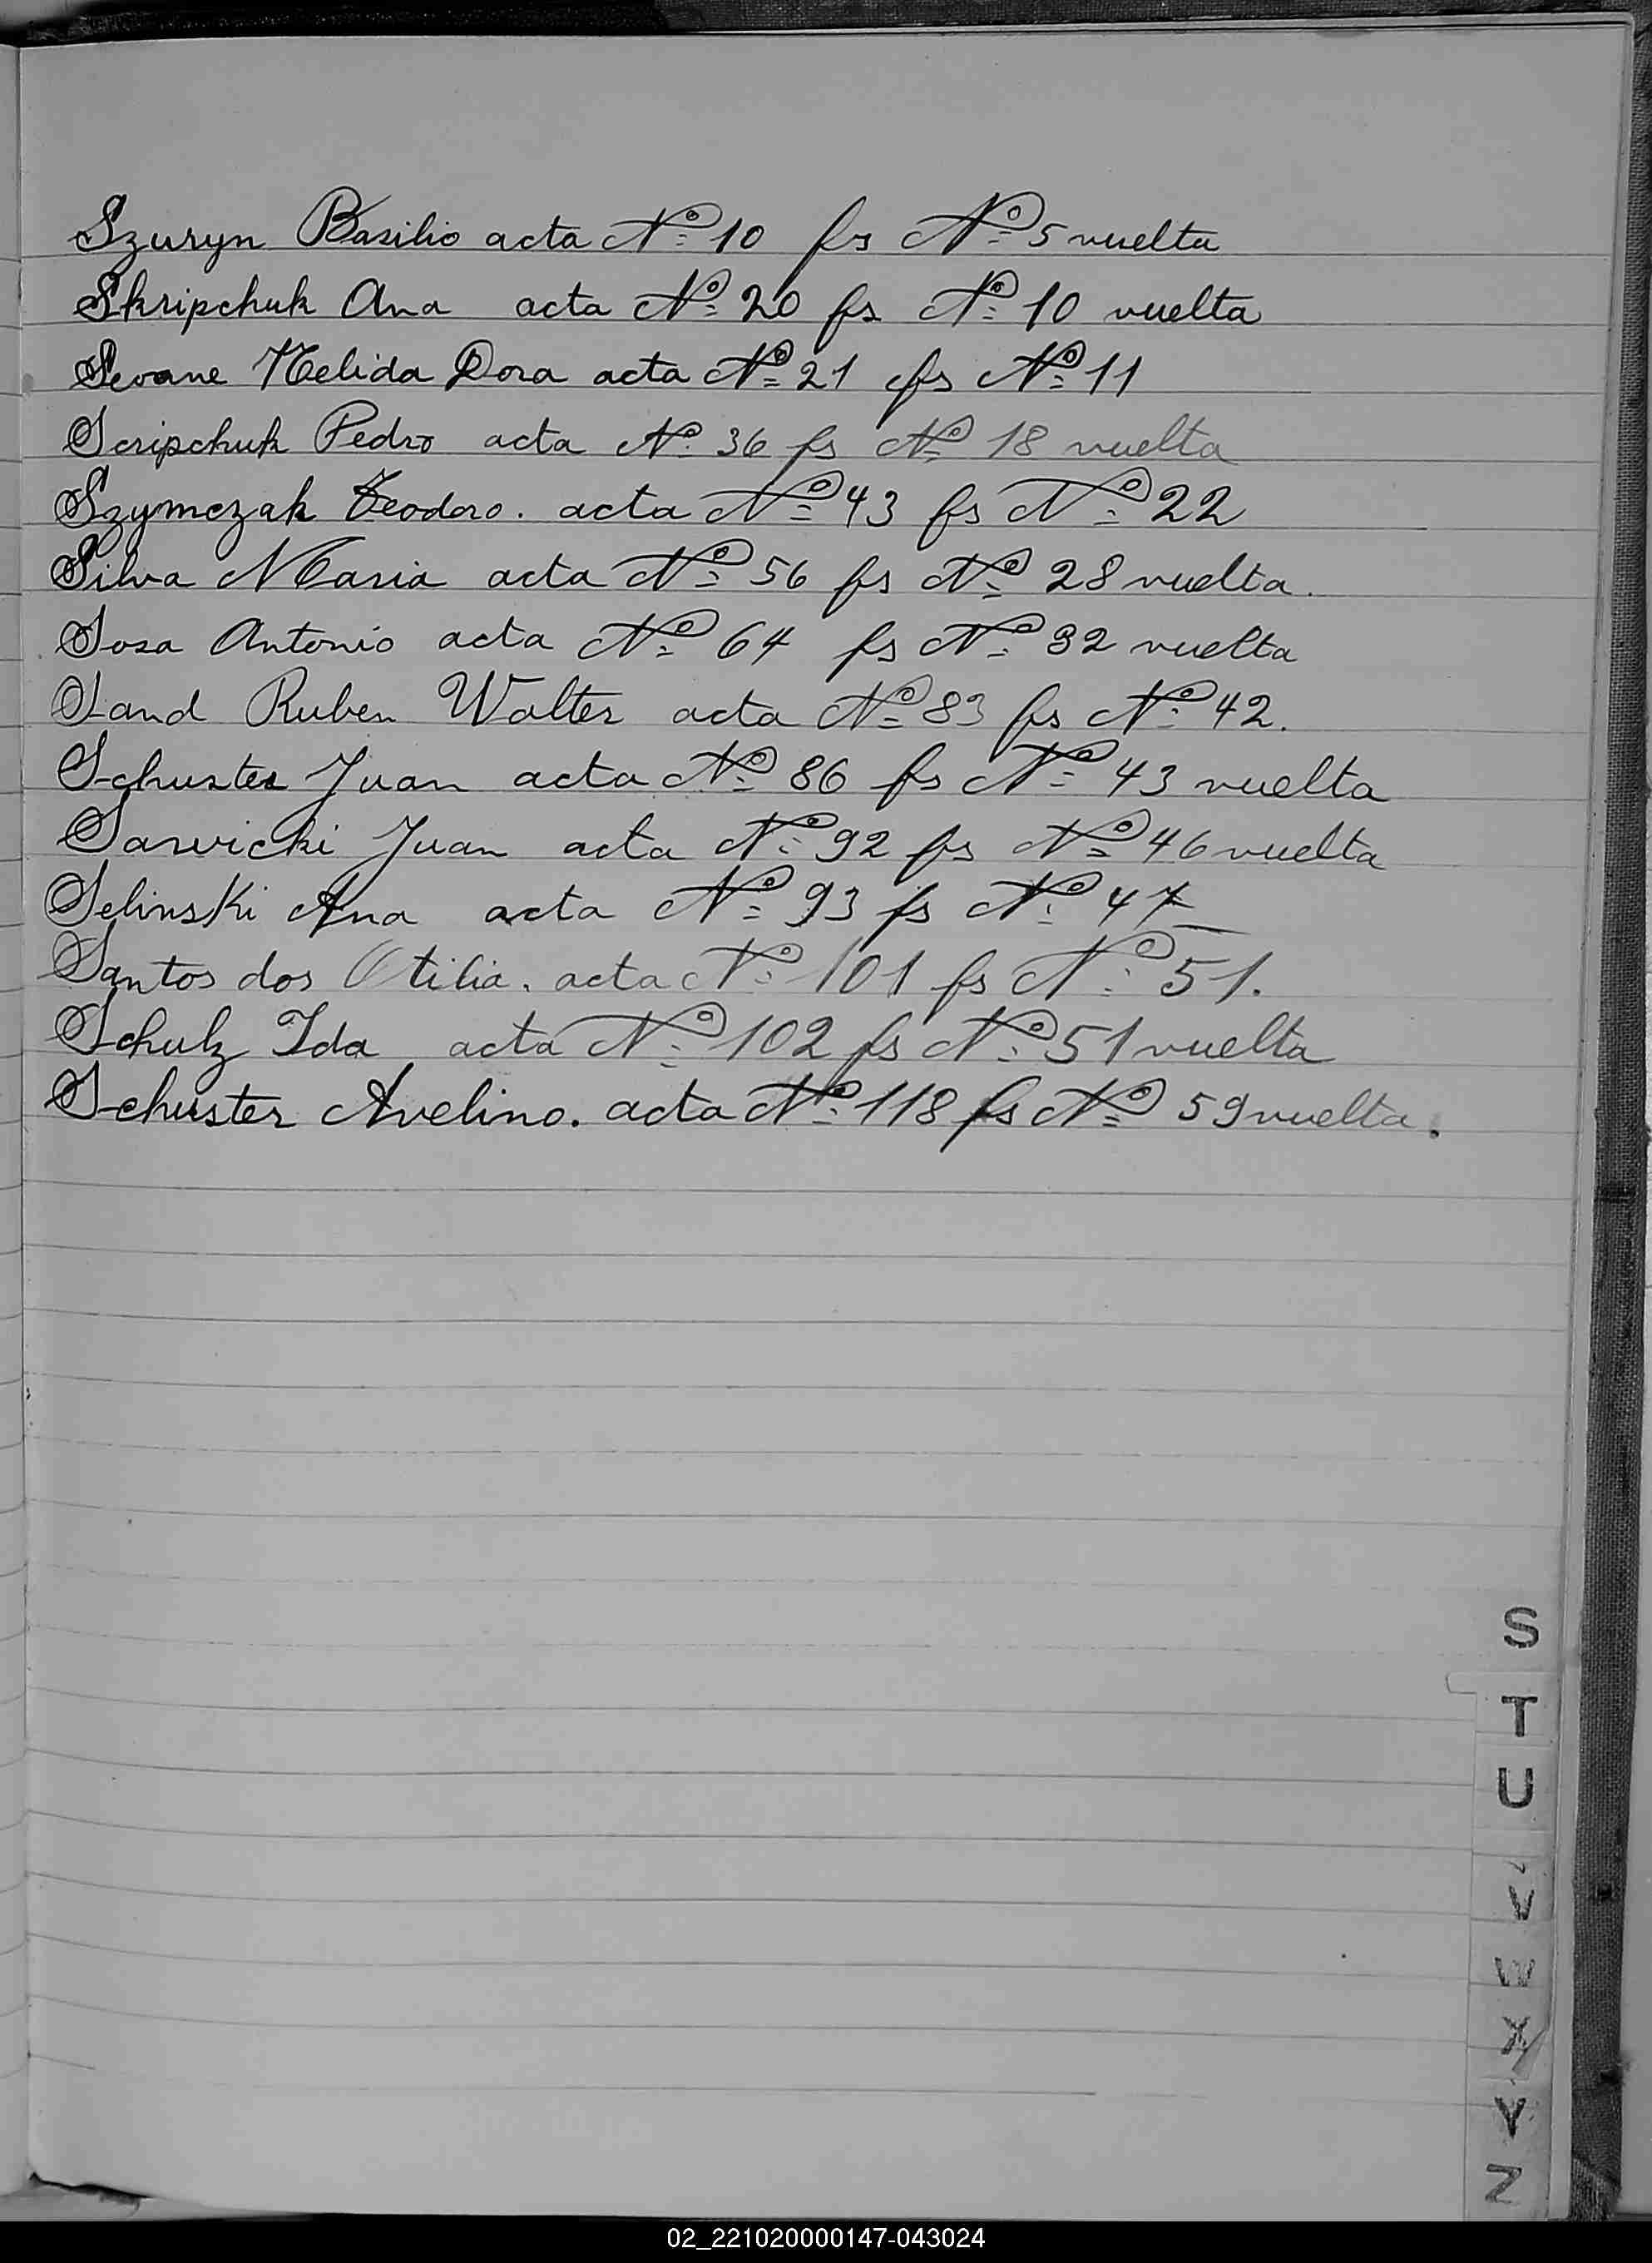 Szuryn Basilio acta Nº 10 fs Nº 5 vuelta
Skripchuk Ana acta Nº 20 fs Nº 10 vuelta
Seoane Nelida Dora acta Nº 21 fs Nº 11
Scripchuk Pedro acta Nº 36 fs Nº 18 vuelta
Szymczak Teodoro. acta Nº 43 fs Nº 22
Silva Maria acta Nº 56 fs Nº 28 vuelta.
Sosa Antonio acta Nº 64 fs Nº 32 vuelta
Sand Ruben Walter acta Nº 83 fs Nº 42.
Schuster Juan acta Nº 86 fs Nº 43 vuelta
Sarvicki Juan acta Nº 92 fs Nº 46 vuelta
Selinski Ana acta Nº 93 fs Nº 47
Santos dos Otilia. acta Nº 101 fs Nº 51.
Schulz Ida acta Nº 102 fs Nº 51 vuelta
Schuster Avelino. acta Nº 118 fs Nº 59 vuelta.
S
T
U
V
W
X
Y
Z
02_221020000147-043024